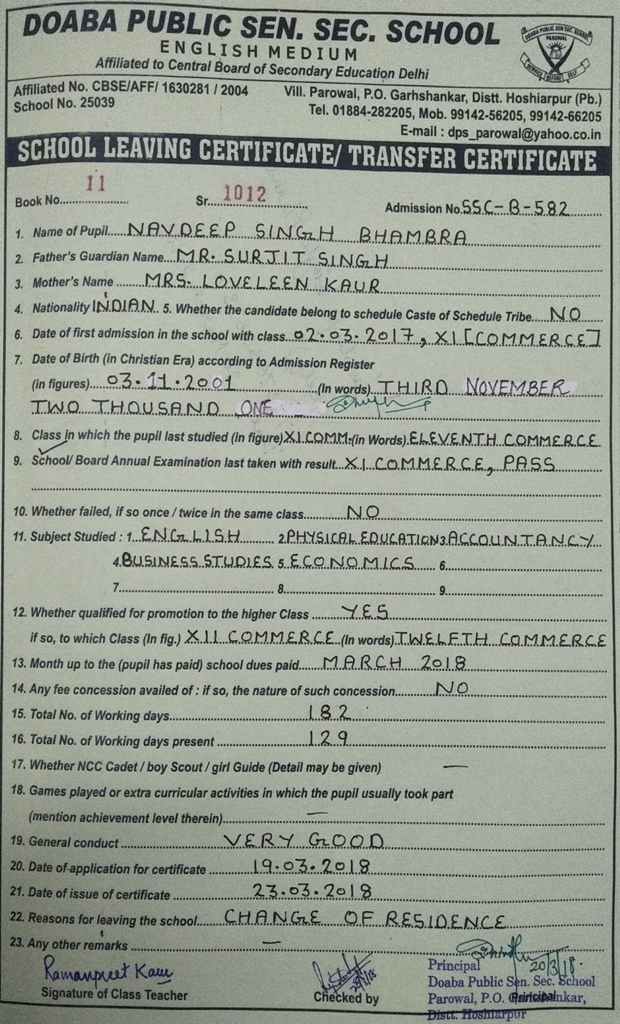 DOABA PUBLIC SEN. SEC. SCHOOL
ENGLISH MEDIUM
Affiliated to Central Board of Secondary Education Delhi
Affiliated No. CBSE/AFF/ 1630281 / 2004
School No. 25039
Vill. Parowal, P.O. Garhshankar, Distt. Hoshiarpur (Pb.)
Tel. 01884-282205, Mob. 99142-56205, 99142-66205
E-mail : dps_parowal@yahoo.co.in
SCHOOL LEAVING CERTIFICATE/ TRANSFER CERTIFICATE
Book No. 11 Sr. 1012 Admission No. SSC-B-582
1. Name of Pupil NAVDEEP SINGH BHAMBRA
2. Father's Guardian Name MR. SURJIT SINGH
3. Mother's Name MRS. LOVELEEN KAUR
4. Nationality INDIAN 5. Whether the candidate belong to schedule Caste of Schedule Tribe NO
6. Date of first admission in the school with class 02.03.2017, XI [COMMERCE]
7. Date of Birth (in Christian Era) according to Admission Register
(in figures) 03.11.2001 (In words) THIRD NOVEMBER
TWO THOUSAND ONE
8. Class in which the pupil last studied (In figure) XI COMM. (in Words) ELEVENTH COMMERCE
9. School/ Board Annual Examination last taken with result XI COMMERCE, PASS
10. Whether failed, if so once / twice in the same class NO
11. Subject Studied : 1. ENGLISH 2. PHYSICAL EDUCATION 3. ACCOUNTANCY
4. BUSINESS STUDIES 5. ECONOMICS 6.
7. 8. 9.
12. Whether qualified for promotion to the higher Class YES
if so, to which Class (In fig.) XII COMMERCE (In words) TWELFTH COMMERCE
13. Month up to the (pupil has paid) school dues paid MARCH 2018
14. Any fee concession availed of : if so, the nature of such concession NO
15. Total No. of Working days 182
16. Total No. of Working days present 129
17. Whether NCC Cadet / boy Scout / girl Guide (Detail may be given) —
18. Games played or extra curricular activities in which the pupil usually took part
(mention achievement level therein) —
19. General conduct VERY GOOD
20. Date of application for certificate 19.03.2018
21. Date of issue of certificate 23.03.2018
22. Reasons for leaving the school CHANGE OF RESIDENCE
23. Any other remarks —
Ramanpreet Kaur
Signature of Class Teacher
Checked by
Principal 20/3/18.
Doaba Public Sen. Sec. School
Parowal, P.O. Principal
Distt. Hoshiarpur